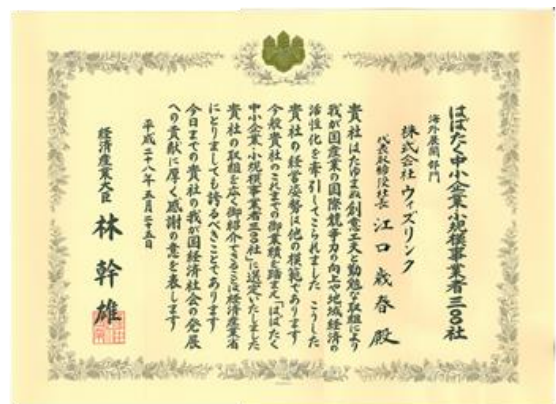 はばたく中小企業・小規模事業者三〇〇社
海外展開部門
株式会社 ウィズリンク
代表取締役社長 江口 歳春 殿
貴社はたゆまぬ創意工夫と勤勉な取組により
我が国産業の国際競争力の向上や地域経済の
活性化を牽引してこられました こうした
貴社の経営姿勢は他の模範であります
今般貴社のこれまでの御業績を踏まえ「はばたく
中小企業・小規模事業者三〇〇社」に選定いたしました
貴社の取組を広く御紹介できることは経済産業省
にとりましても誇るべきことであります
今日までの貴社の我が国経済社会の発展
への貢献に厚く感謝の意を表します
平成二十八年五月二十五日
経済産業大臣 林 幹雄